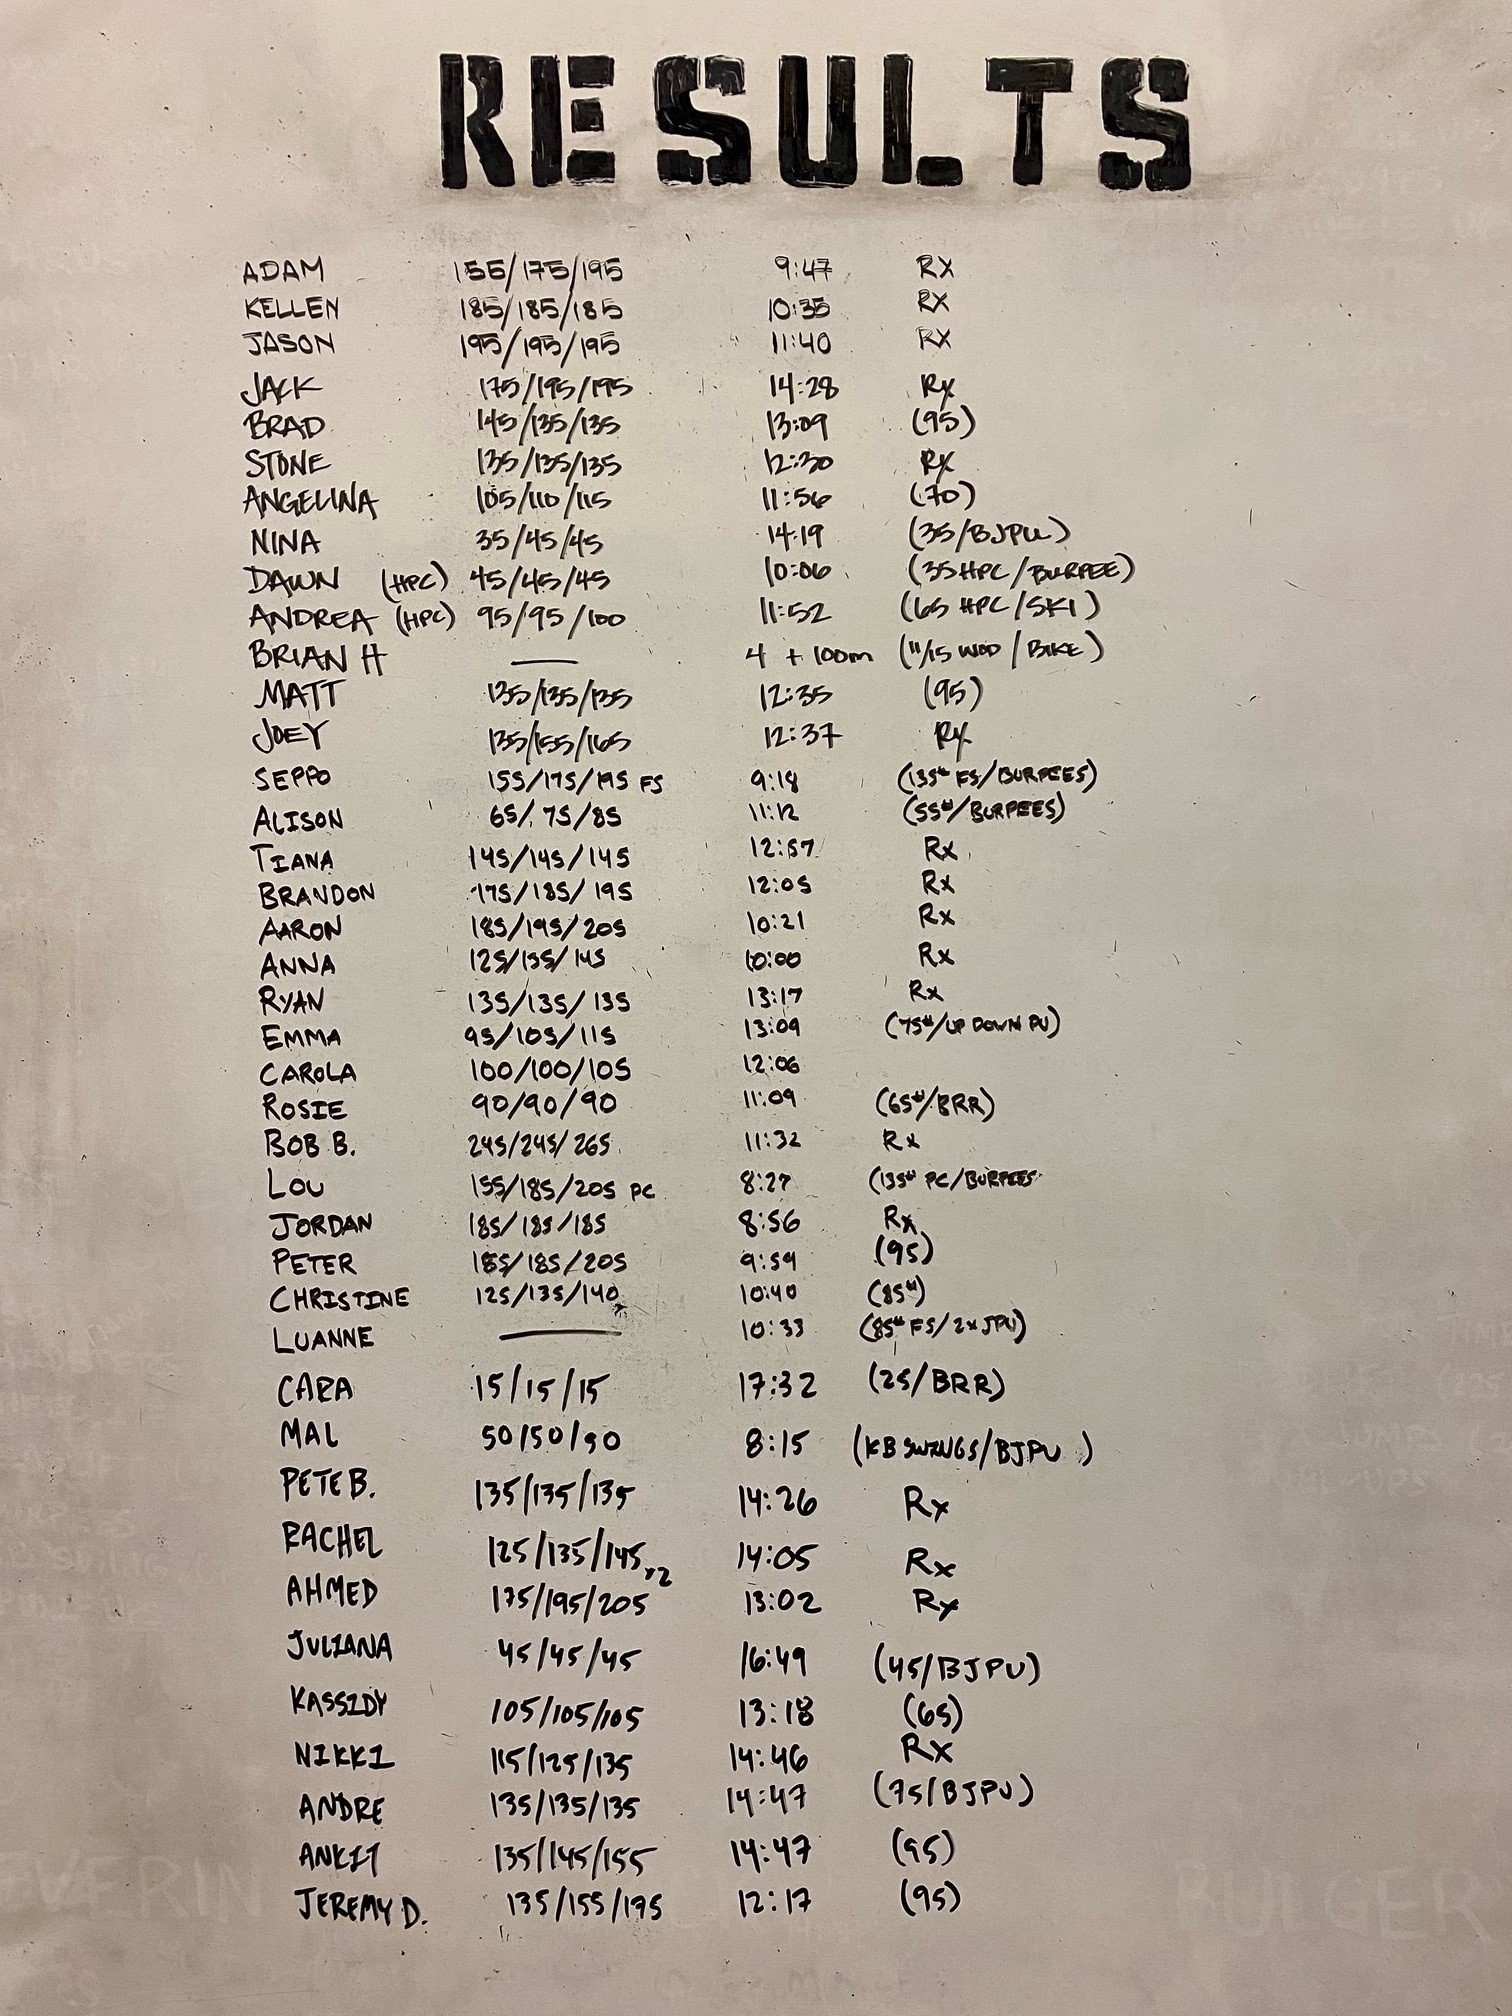 RESULTS
ADAM 155/175/195 9:47 Rx
KELLEN 185/185/185 10:35 Rx
JASON 195/195/195 11:40 Rx
JACK 175/195/195 14:28 Rx
BRAD 145/135/135 13:09 (95)
STONE 135/135/135 12:30 Rx
ANGELINA 105/110/115 11:56 (70)
NINA 35/45/45 14:19 (35/BJPU)
DAWN (HPC) 45/45/45 10:06 (35HPC/BURPEE)
ANDREA (HPC) 95/95/100 11:52 (65 HPC/SKI)
BRIAN H — 4 + 100m (11/15 WOD / BIKE)
MATT 135/135/135 12:35 (95)
JOEY 135/155/165 12:37 Rx
SEPPO 155/175/195 FS 9:18 (135# FS/BURPEES)
ALISON 65/75/85 11:12 (55#/BURPEES)
TIANA 145/145/145 12:57 Rx
BRANDON 175/185/195 12:05 Rx
AARON 185/195/205 10:21 Rx
ANNA 125/135/145 10:00 Rx
RYAN 135/135/135 13:17 Rx
EMMA 95/105/115 13:09 (75#/UP DOWN PU)
CAROLA 100/100/105 12:06
ROSIE 90/90/90 11:09 (65#/BRR)
BOB B. 245/245/265 11:32 Rx
LOU 155/185/205 PC 8:27 (135# PC/BURPEES
JORDAN 185/185/185 8:56 Rx
PETER 185/185/205 9:59 (95)
CHRISTINE 125/135/140 10:40 (85#)
LUANNE — 10:33 (85# FS/2xJPU)
CARA 15/15/15 17:32 (25/BRR)
MAL 50/50/90 8:15 (KB SWINGS/BJPU)
PETE B. 135/135/135 14:26 Rx
RACHEL 125/135/145 x2 14:05 Rx
AHMED 175/195/205 13:02 Rx
JULIANA 45/45/45 16:49 (45/BJPU)
KASSIDY 105/105/105 13:18 (65)
NIKKI 115/125/135 14:46 Rx
ANDRE 135/135/135 14:47 (75/BJPU)
ANKIT 135/145/155 14:47 (95)
JEREMY D. 135/155/175 12:17 (95)
BULGER